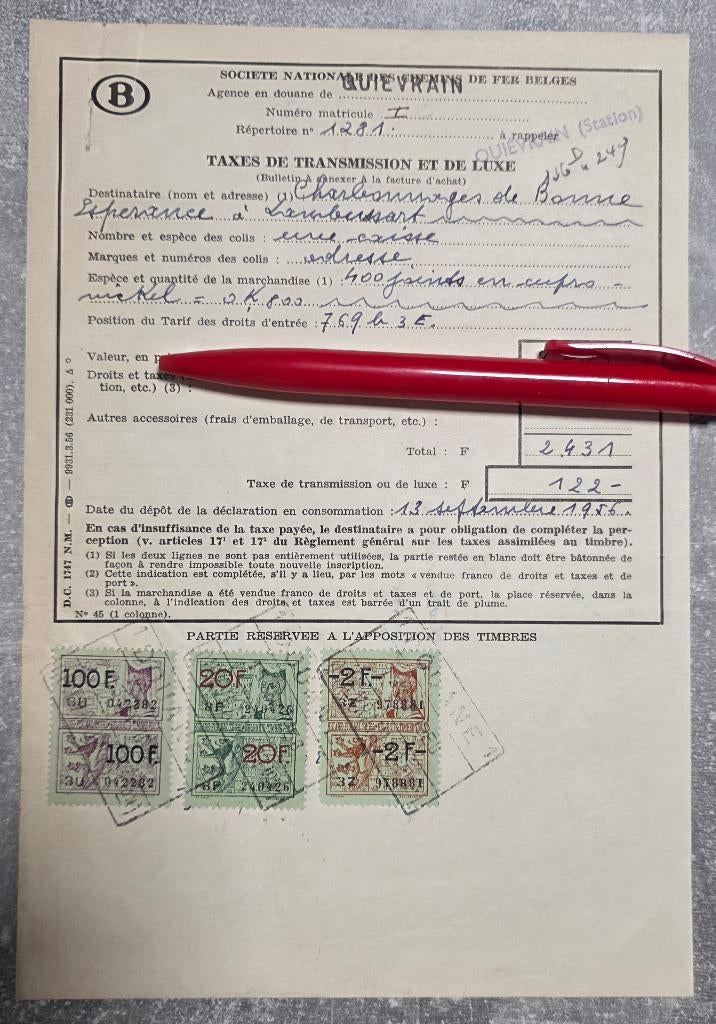 B
SOCIETE NATIONALE DES CHEMINS DE FER BELGES
Agence en douane de QUIEVRAIN
Numéro matricule I
Répertoire n° 1281. à rappeler
QUIEVRAIN (Station)
TAXES DE TRANSMISSION ET DE LUXE
(Bulletin à annexer à la facture d'achat)
Destinataire (nom et adresse) (1) Charbonnages de Bonne
Espérance à Lambusart
Nombre et espèce des colis : une caisse
Marques et numéros des colis : adresse
Espèce et quantité de la marchandise (1) : 400 joints en cupro-
nickel = 0K800
Position du Tarif des droits d'entrée : 769 b 3 E.
Valeur, en
Droits et taxes
tion, etc.) (3) :
Autres accessoires (frais d'emballage, de transport, etc.) :
Total : F 2431
Taxe de transmission ou de luxe : F 122-
Date du dépôt de la déclaration en consommation : 13 septembre 1956.
En cas d'insuffisance de la taxe payée, le destinataire a pour obligation de compléter la per-
ception (v. articles 17¹ et 17² du Règlement général sur les taxes assimilées au timbre).
(1) Si les deux lignes ne sont pas entièrement utilisées, la partie restée en blanc doit être bâtonnée de
façon à rendre impossible toute nouvelle inscription.
(2) Cette indication est complétée, s'il y a lieu, par les mots « vendue franco de droits et taxes et de
port ».
(3) Si la marchandise a été vendue franco de droits et taxes et de port, la place réservée, dans la
colonne, à l'indication des droits et taxes est barrée d'un trait de plume.
N° 45 (1 colonne).
D.C. 1747 N.M. — B — 9931.3.56 (231 000). Δ o
PARTIE RESERVEE A L'APPOSITION DES TIMBRES
100F. 20F. -2F.-
3U 042282 8P 240426 3Z 978881
100F. 20F. -2F-
3U 042282 8P 240426 3Z 978881